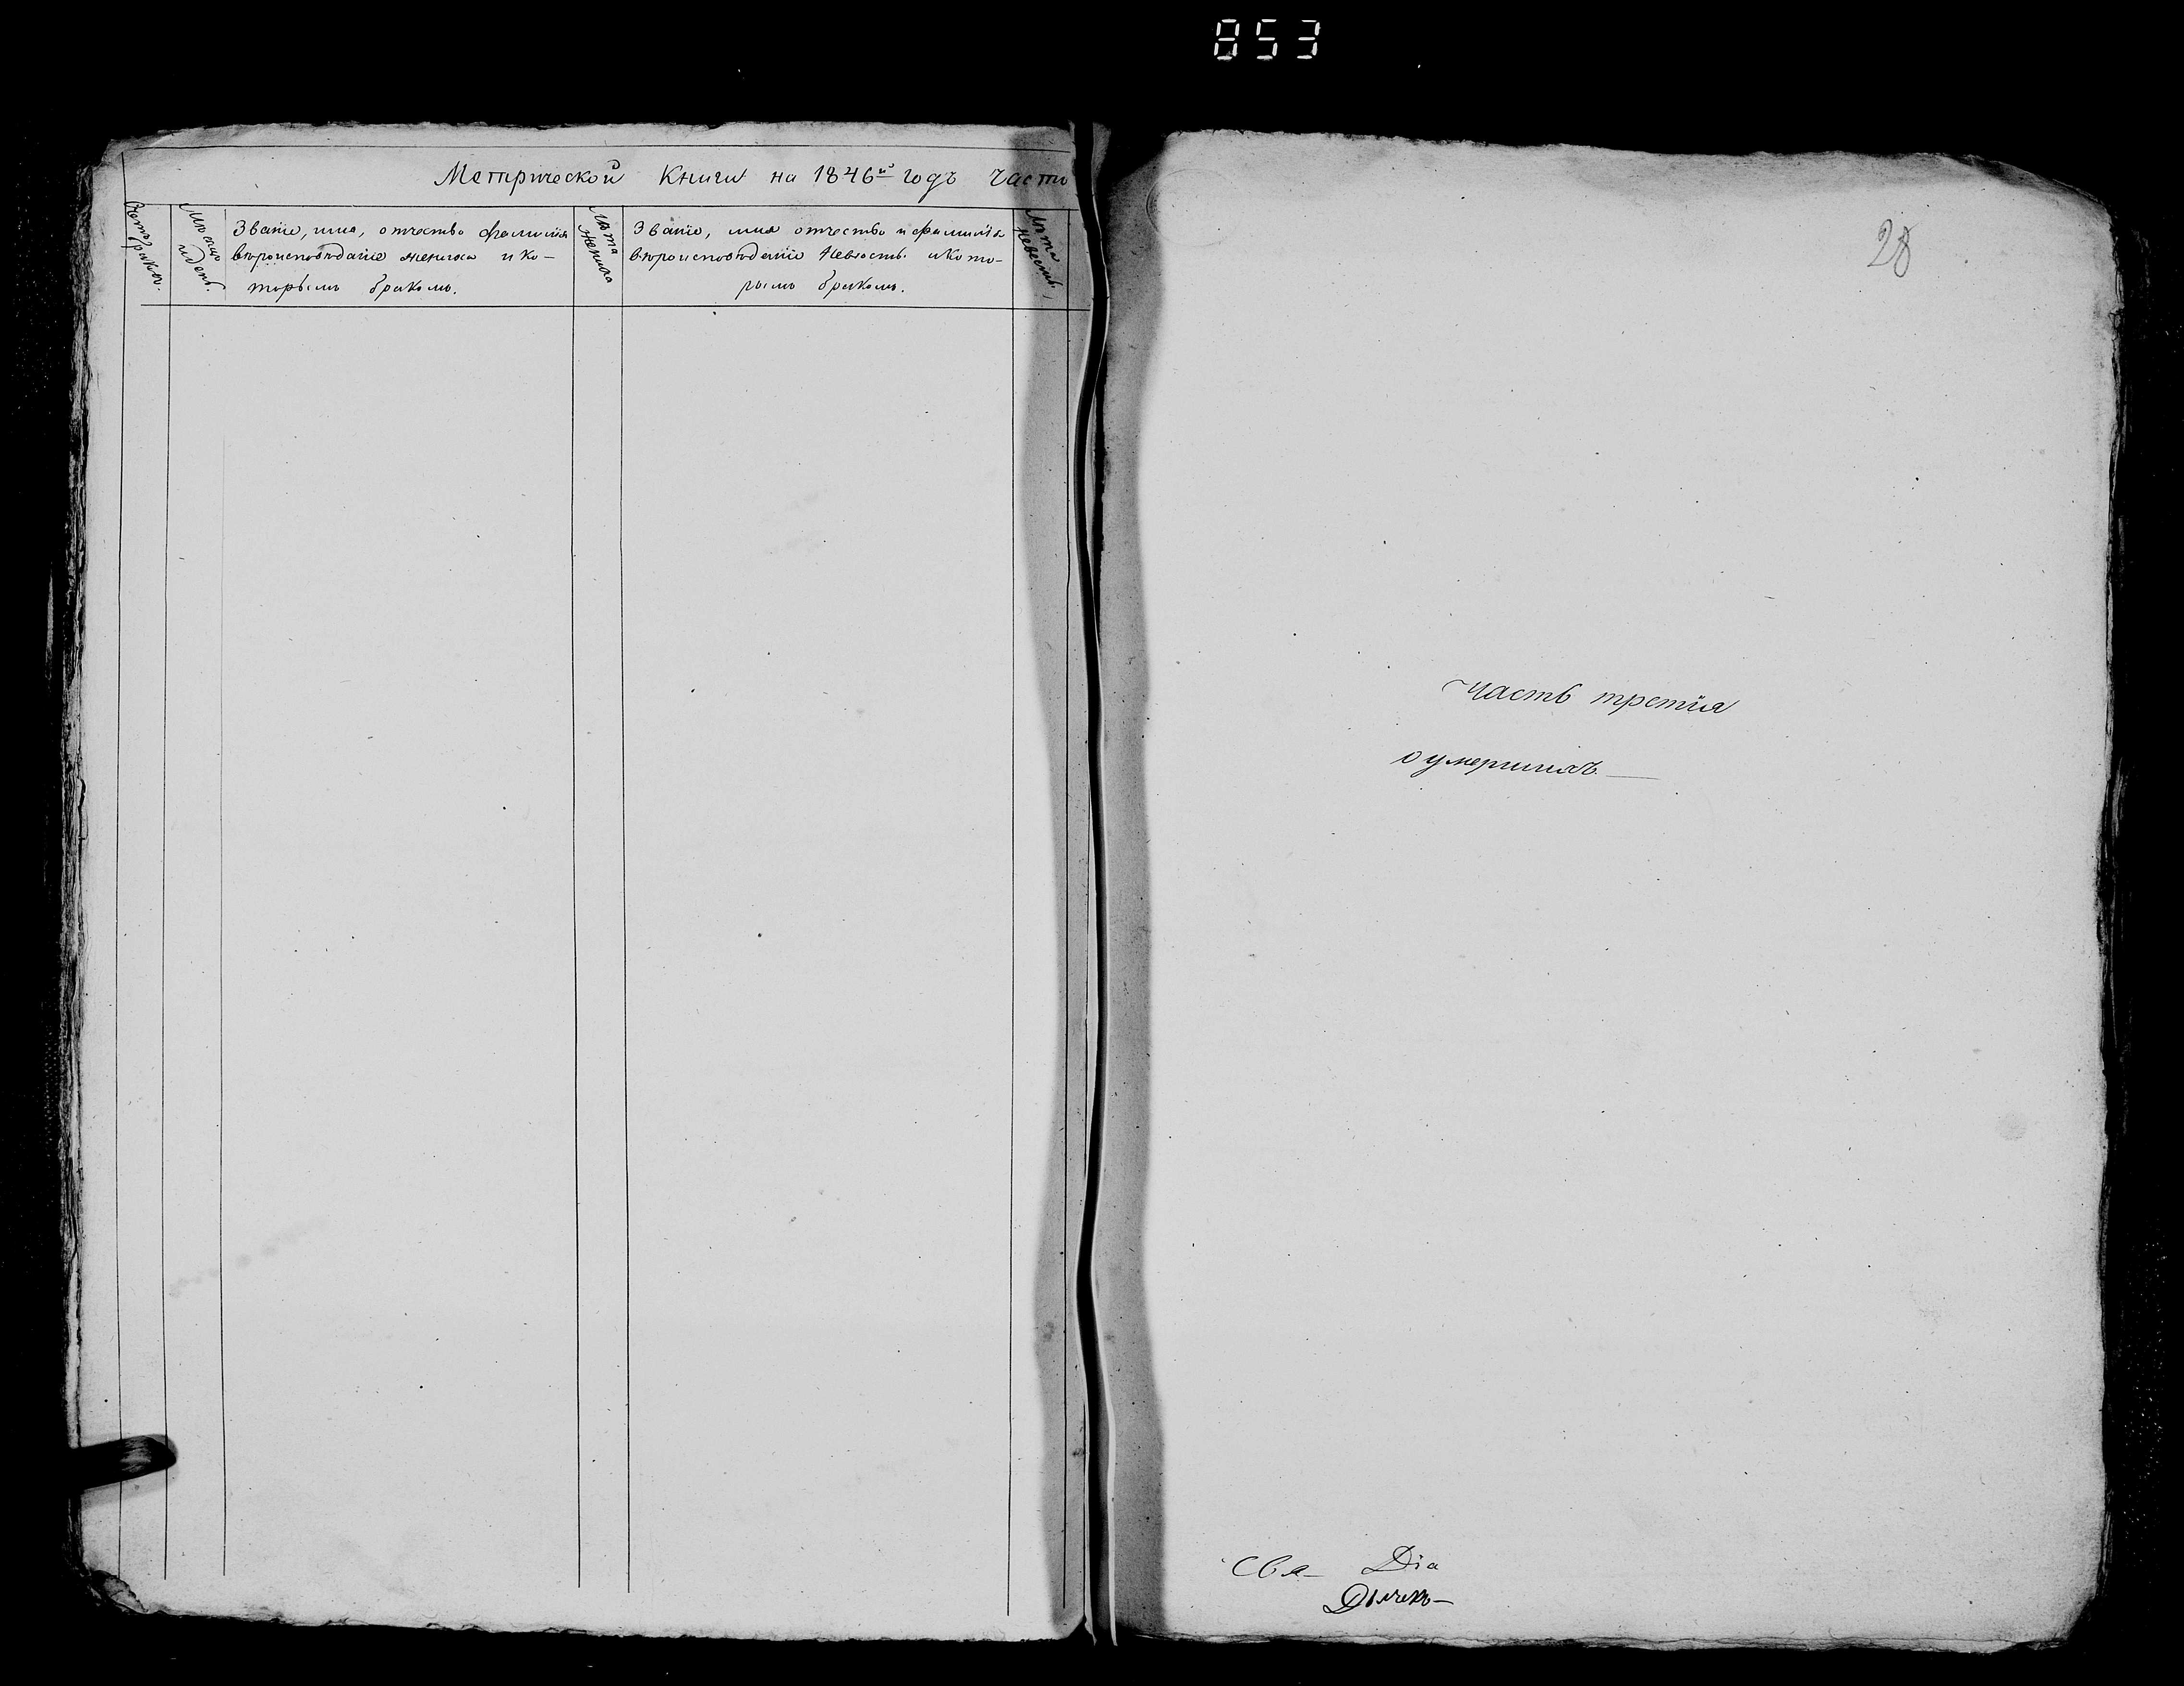 853
Метрической Книги на 1846й годъ части
Счетъ браковъ.
Мѣсяцъ и день.
Званіе, имя, отчество фамилія
вѣроисповѣданіе жениха и ко-
торымъ бракомъ.
Лѣта жениха
Званіе, имя отчество и фамилія
вѣроисповѣданіе Невѣсты. и кото-
рымъ бракомъ.
Лѣта невесты,
28
Часть третія
о умершихъ
Свя- Діа